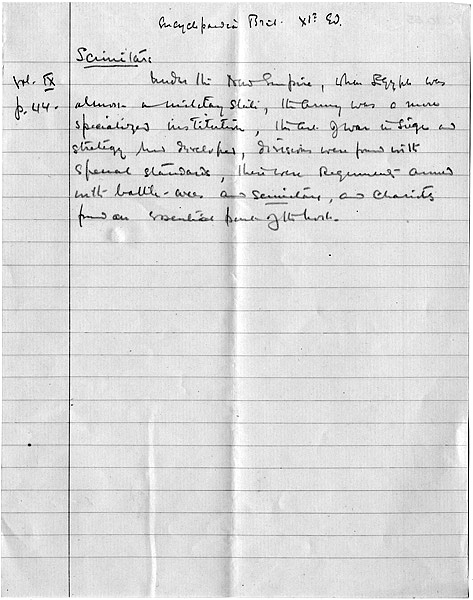 Encyclopaedia Brit. XIth Ed.
Scimitars
vol. IX
Under the New Empire, when Egypt was
p. 44.
almost a military State, the army was a more
specialized institution, the art of war in siege and
strategy had developed, divisions were formed with
special standards, there were Regiments armed
with battle-axes and scimitars, and chariots
formed an essential part of the host.